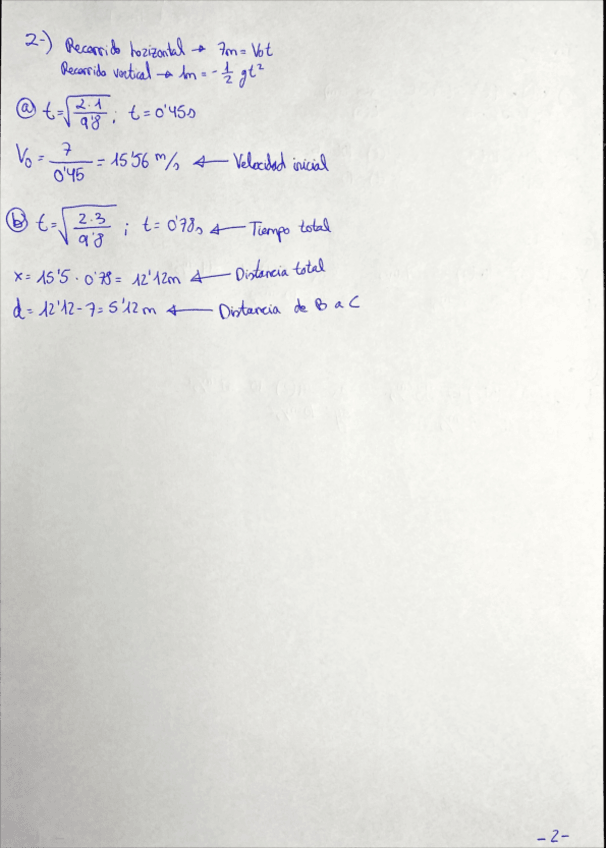 2-) Recorrido horizontal → 7m = V₀t
Recorrido vertical → 1m = -1/2 gt²
ⓐ t=√(2·1/9'8); t=0'45s
V₀ = 7/0'45 = 15'56 m/s ← Velocidad inicial
ⓑ t=√(2·3/9'8); t=0'78s ← Tiempo total
x= 15'5 · 0'78 = 12'12m ← Distancia total
d= 12'12-7=5'12m ← Distancia de B a C
-2-